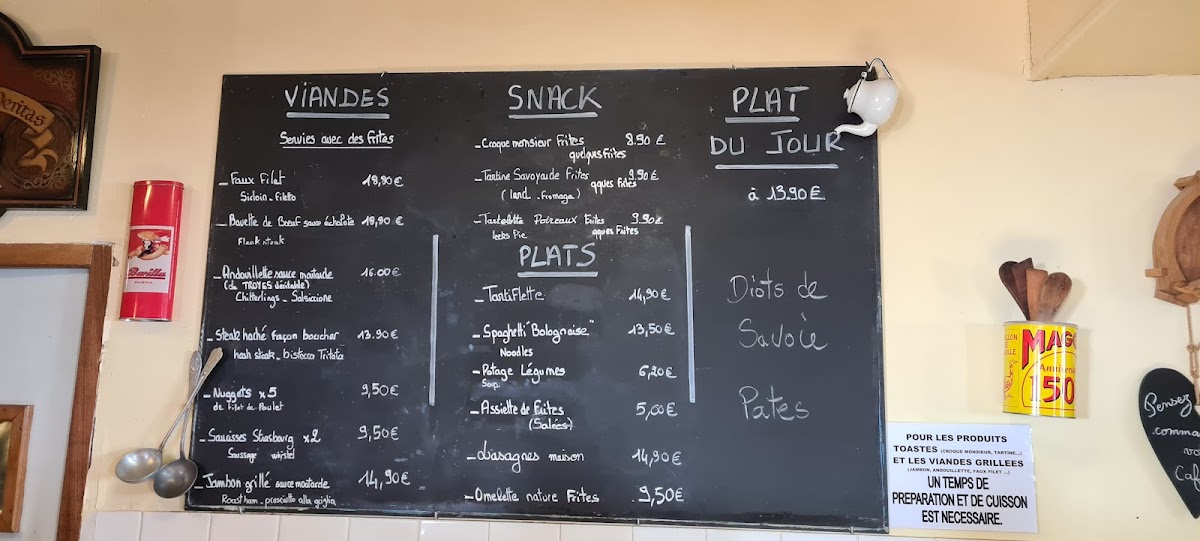 Veritas
Barilla
PARMA
VIANDES
Servies avec des frites
- Faux Filet 18,90 €
Sirloin - Filetto
- Bavette de Bœuf sauce échalote 18,90 €
Flank steak
- Andouillette sauce moutarde 16.00 €
(de TROYES véritable)
Chitterlings - Salsiccione
- Steak haché façon boucher 13.90 €
hash steak - bistecca Tritata
- Nuggets x5 9,50 €
de filet de Poulet
- Saucisses Strasbourg x2 9,50 €
Sausage würstel
- Jambon grillé sauce moutarde 14,90 €
Roastham - prosciutto alla griglia
SNACK
- Croque monsieur Frites 8.90 €
quelques Frites
- Tartine Savoyarde Frites 9.90 €
qques Frites
(lard - fromage)
- Tartelette Poireaux Frites 9.90 €
leeks Pie qques Frites
PLATS
- Tartiflette 14,90 €
- Spaghetti "Bolognaise" 13,50 €
Noodles
- Potage Légumes 6,20 €
Soup
- Assiette de Frites 5,00 €
(Salées)
- Lasagnes maison 14,90 €
- Omelette nature Frites 9,50 €
PLAT
DU JOUR
à 13.90 €
Diots de
Savoie
Pates
MAGG
Anniversa
150
POUR LES PRODUITS
TOASTES (CROQUE MONSIEUR, TARTINE...)
ET LES VIANDES GRILLEES
(JAMBON, ANDOUILLETTE, FAUX FILET ...)
UN TEMPS DE
PREPARATION ET DE CUISSON
EST NECESSAIRE.
Pensez
comma
vo
Café